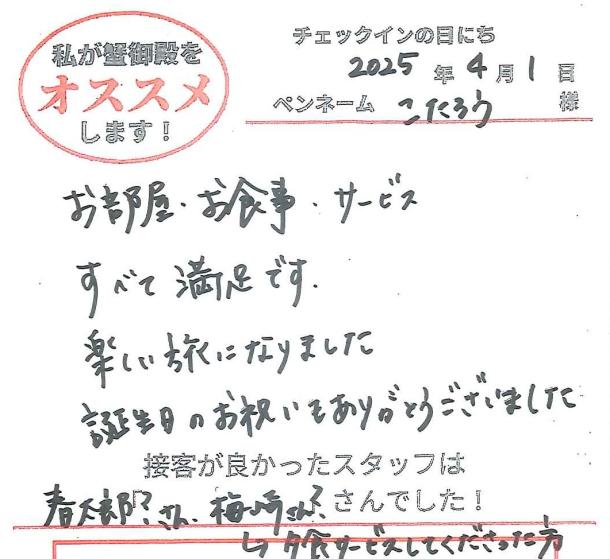 私が蟹御殿を
オススメ
します！
チェックインの日にち
2025 年 4 月 1 日
ペンネーム こたろう 様
お部屋・お食事・サービス
すべて満足です.
楽しい旅になりました
誕生日のお祝いもありがとうございました
接客が良かったスタッフは
春太郎?さん、梅崎さん? さんでした！
↳夕食サービスしてくださった方